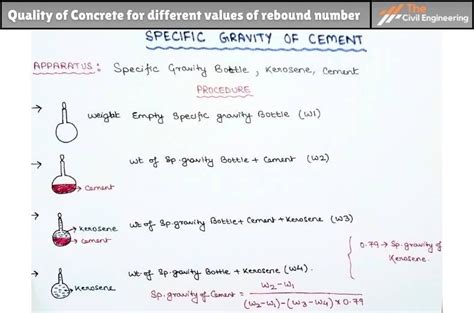 Quality of Concrete for different values of rebound number
The
Civil Engineering
SPECIFIC GRAVITY OF CEMENT
APPARATUS: Specific Gravity Bottle, Kerosene, Cement
PROCEDURE
→ weight Empty Specific gravity Bottle (W1)
→ wt of Sp.gravity Bottle + Cement (W2)
→ Cement
→ wt of Sp.gravity Bottle + Cement + Kerosene (W3)
→ Kerosene
→ cement
0.79 → Sp.gravity of
Kerosene.
→ wt of Sp.gravity Bottle + Kerosene (W4).
→ Kerosene
Sp.gravity of Cement = W2-W1
(W2-W1)-(W3-W4)*0.79